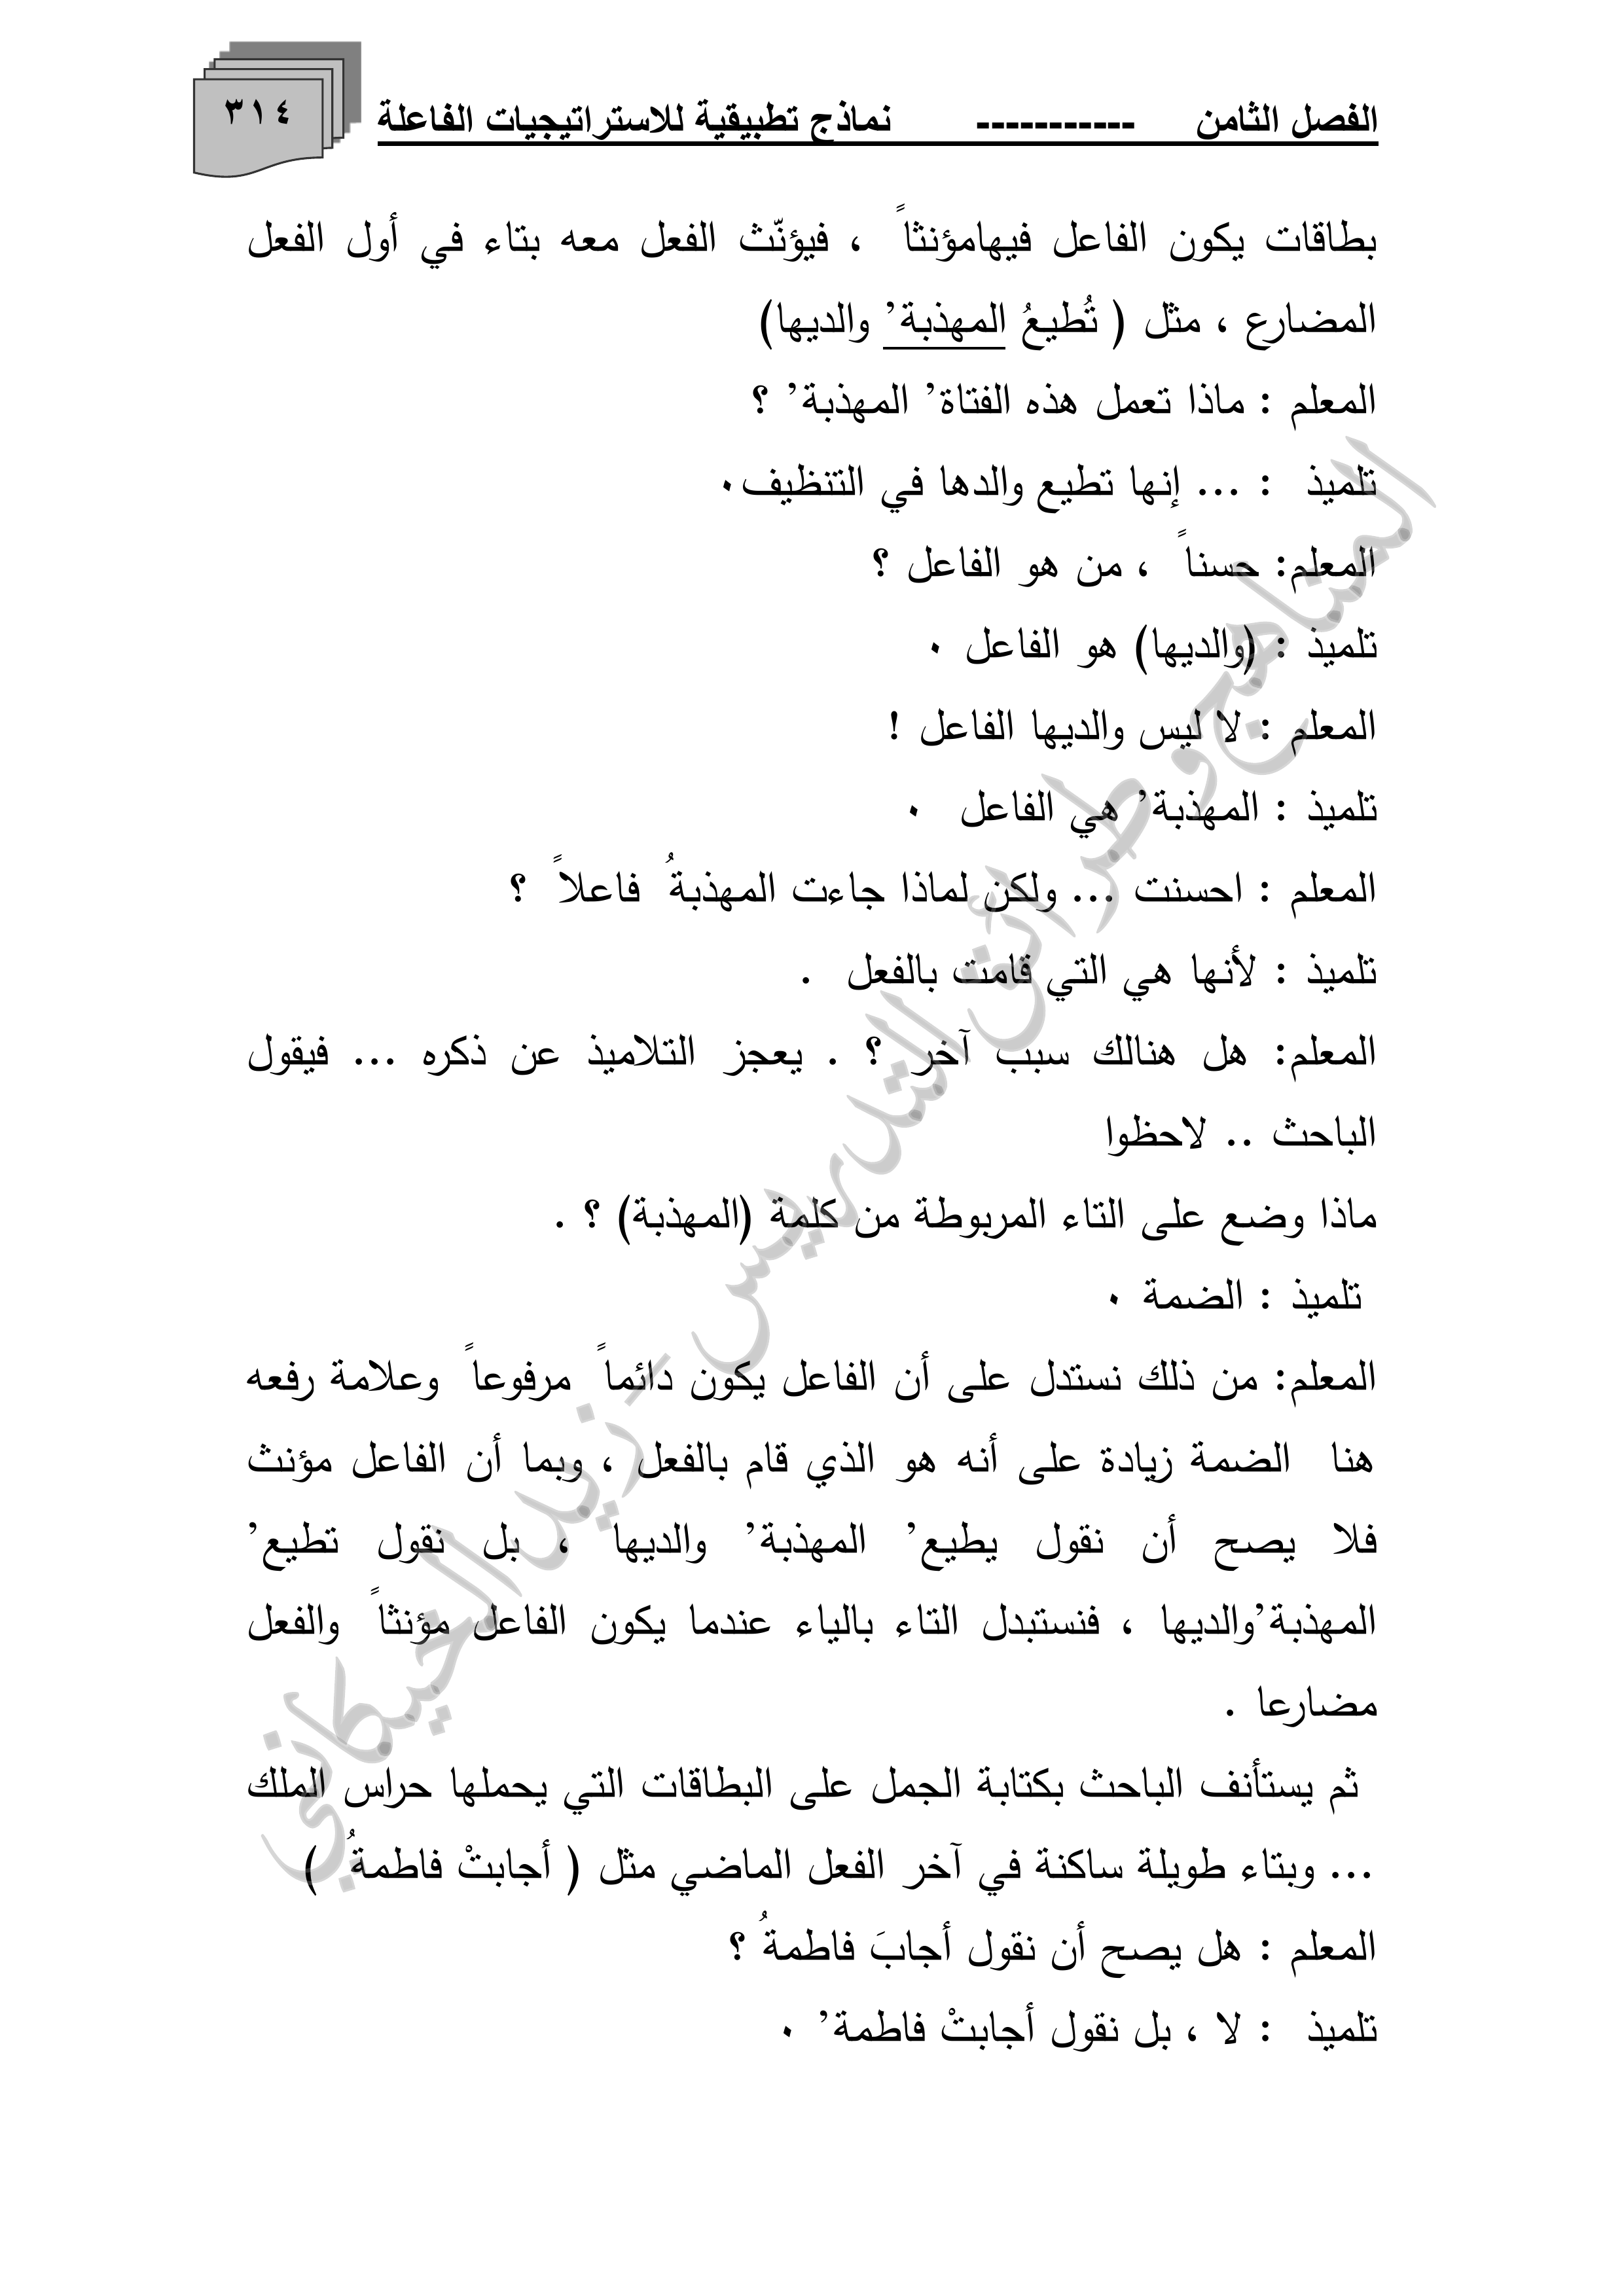 الفصل الثامن ----------- نماذج تطبيقية للاستراتيجيات الفاعلة
٣١٤
بطاقات يكون الفاعل فيهامؤنثاً ، فيؤنّث الفعل معه بتاء في أول الفعل
المضارع ، مثل ( تُطيعُ المهذبة’ والديها)
المعلم : ماذا تعمل هذه الفتاة’ المهذبة’ ؟
تلميذ : ... إنها تطيع والدها في التنظيف٠
المعلم: حسناً ، من هو الفاعل ؟
تلميذ : (والديها) هو الفاعل ٠
المعلم : لا ليس والديها الفاعل !
تلميذ : المهذبة’ هي الفاعل ٠
المعلم : احسنت ... ولكن لماذا جاءت المهذبةُ فاعلاً ؟
تلميذ : لأنها هي التي قامت بالفعل .
المعلم: هل هنالك سبب آخر ؟ . يعجز التلاميذ عن ذكره ... فيقول
الباحث .. لاحظوا
ماذا وضع على التاء المربوطة من كلمة (المهذبة) ؟ .
تلميذ : الضمة ٠
المعلم: من ذلك نستدل على أن الفاعل يكون دائماً مرفوعاً وعلامة رفعه
هنا الضمة زيادة على أنه هو الذي قام بالفعل ، وبما أن الفاعل مؤنث
فلا يصح أن نقول يطيع’ المهذبة’ والديها ، بل نقول تطيع’
المهذبة’والديها ، فنستبدل التاء بالياء عندما يكون الفاعل مؤنثاً والفعل
مضارعا .
ثم يستأنف الباحث بكتابة الجمل على البطاقات التي يحملها حراس الملك
... وبتاء طويلة ساكنة في آخر الفعل الماضي مثل ( أجابتْ فاطمةُ )
المعلم : هل يصح أن نقول أجابَ فاطمةُ ؟
تلميذ : لا ، بل نقول أجابتْ فاطمة’ ٠
المناهج وطرائق التدريس - زيد الخيكاني